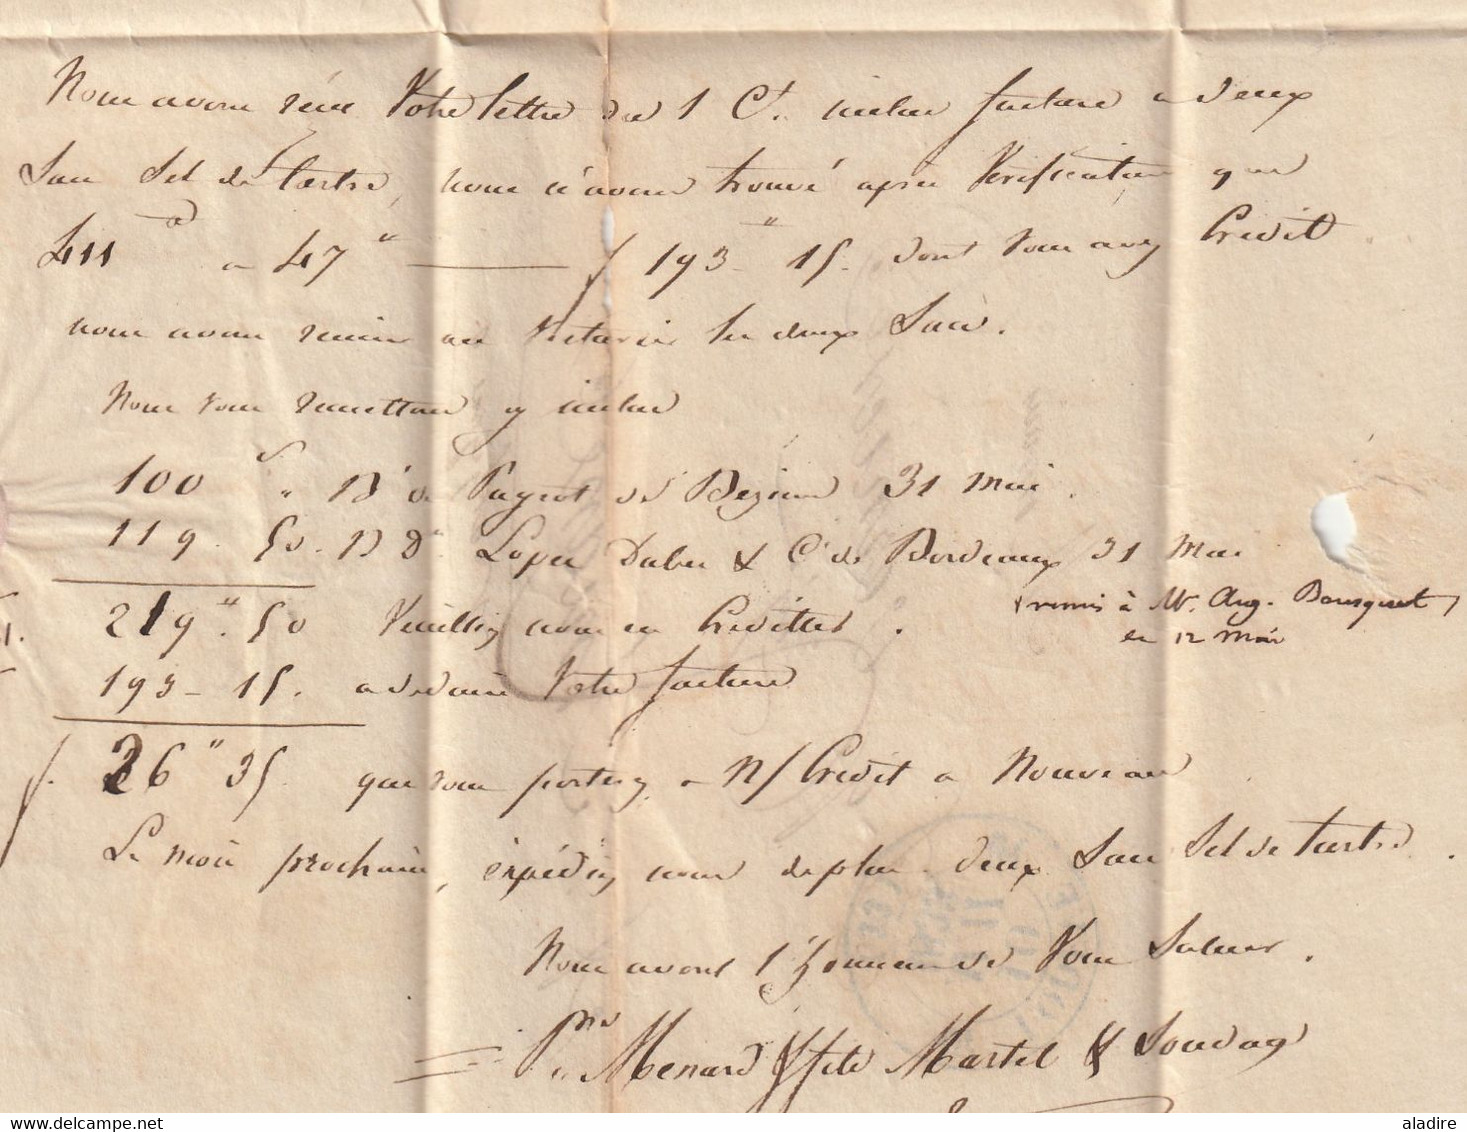 Nous avons reçu Votre lettre du 1 Ct. incluse facture a deux
Sacs Sel de tartre, nous n'avons trouvé après Vérification que
411 a 47 " f 193 - 15. dont vous avez Crédit
nous avons remis au les deux Sacs.
Nous vous remettons cy inclus
100 " " B de Bezier 31 Mai.
119. 50. B Lopes Dubec & Cie de Bordeaux 31 Mai
(remis à Mr. Aug. Bousquet)
le 12 Mai
219 " 50 Veuillez nous en Créditer.
193 - 15. a déduire Votre facture
f. 26 " 35. que vous porterez a N/ Crédit a Nouveau
Le mois prochain, expédiez nous de plus deux Sacs Sel de tartre.
Nous avons l'honneur de Vous Saluer.
Menard & fils Martel &
aladire